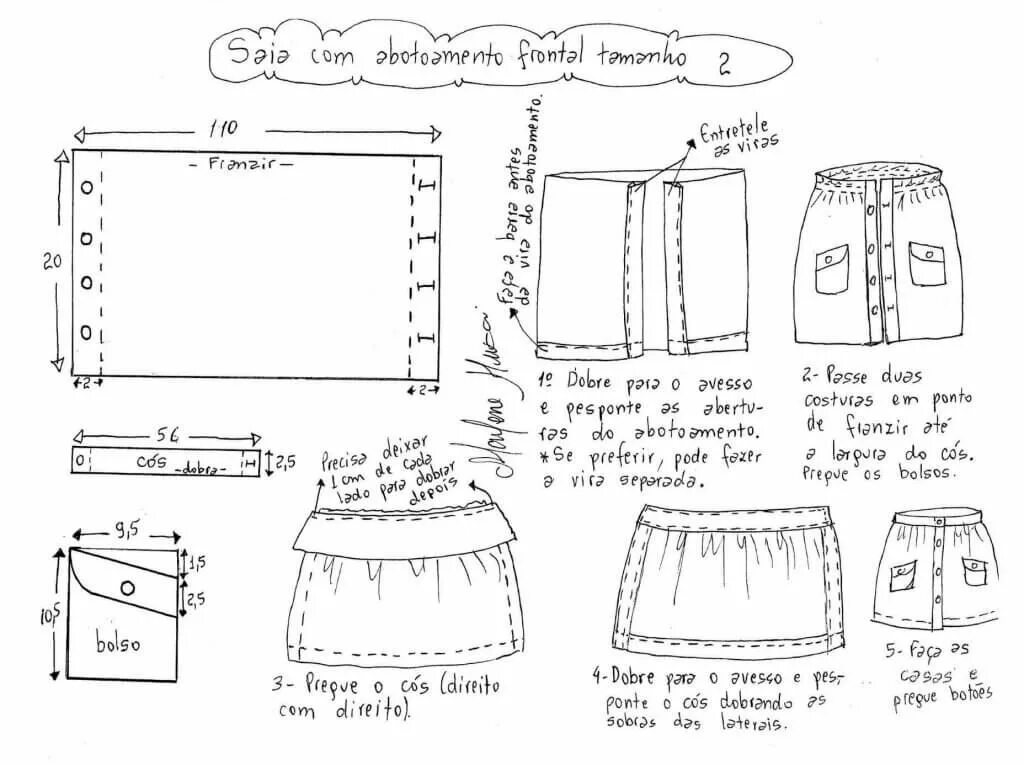 Saia com abotoamento frontal tamanho 2
110
- Franzir -
20
2
2
56
cós
- dobra -
2,5
9,5
1,5
2,5
10,5
bolso
Faça a barra antes
da vira do abotoamento.
Entretele
as viras
1º Dobre para o avesso
e pesponte as abertu-
ras do abotoamento.
*Se preferir, pode fazer
a vira separada.
2- Passe duas
costuras em ponto
de franzir até
a largura do cós.
Pregue os bolsos.
Precisa deixar
1 cm de cada
lado para dobrar
depois
3- Pregue o cós (direito
com direito).
4- Dobre para o avesso e pes-
ponte o cós dobrando as
sobras das laterais.
5- Faça as
casas e
pregue botões